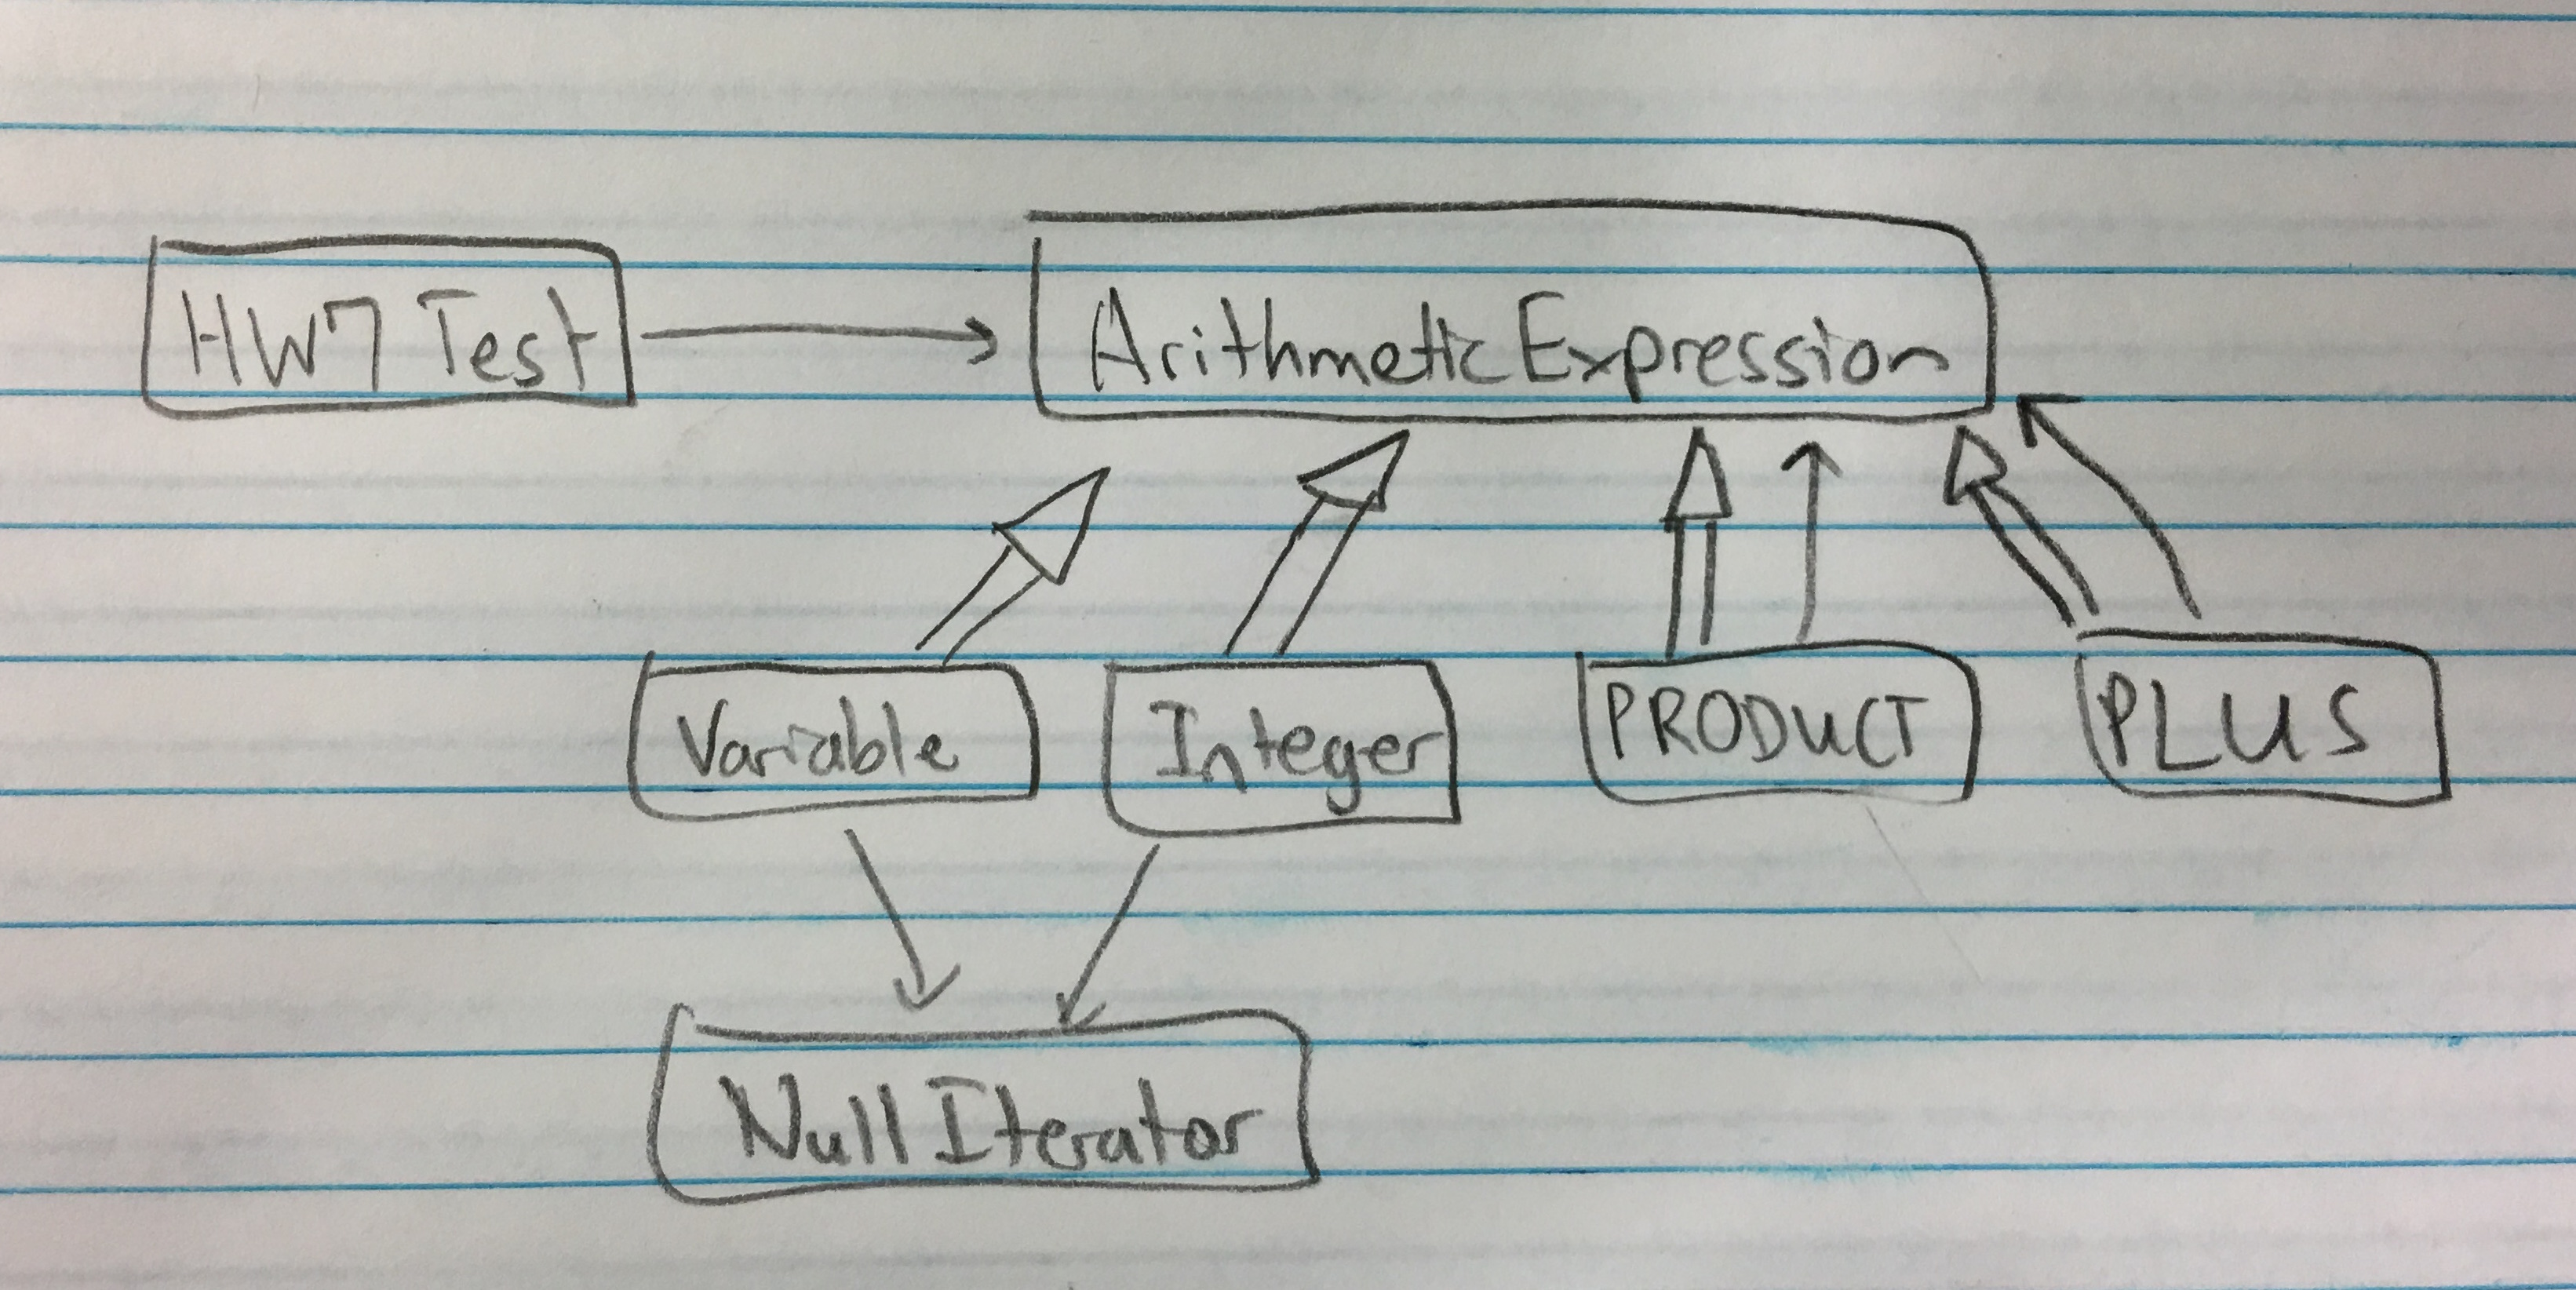 HW7 Test
ArithmeticExpression
Variable
Integer
PRODUCT
PLUS
NullIterator